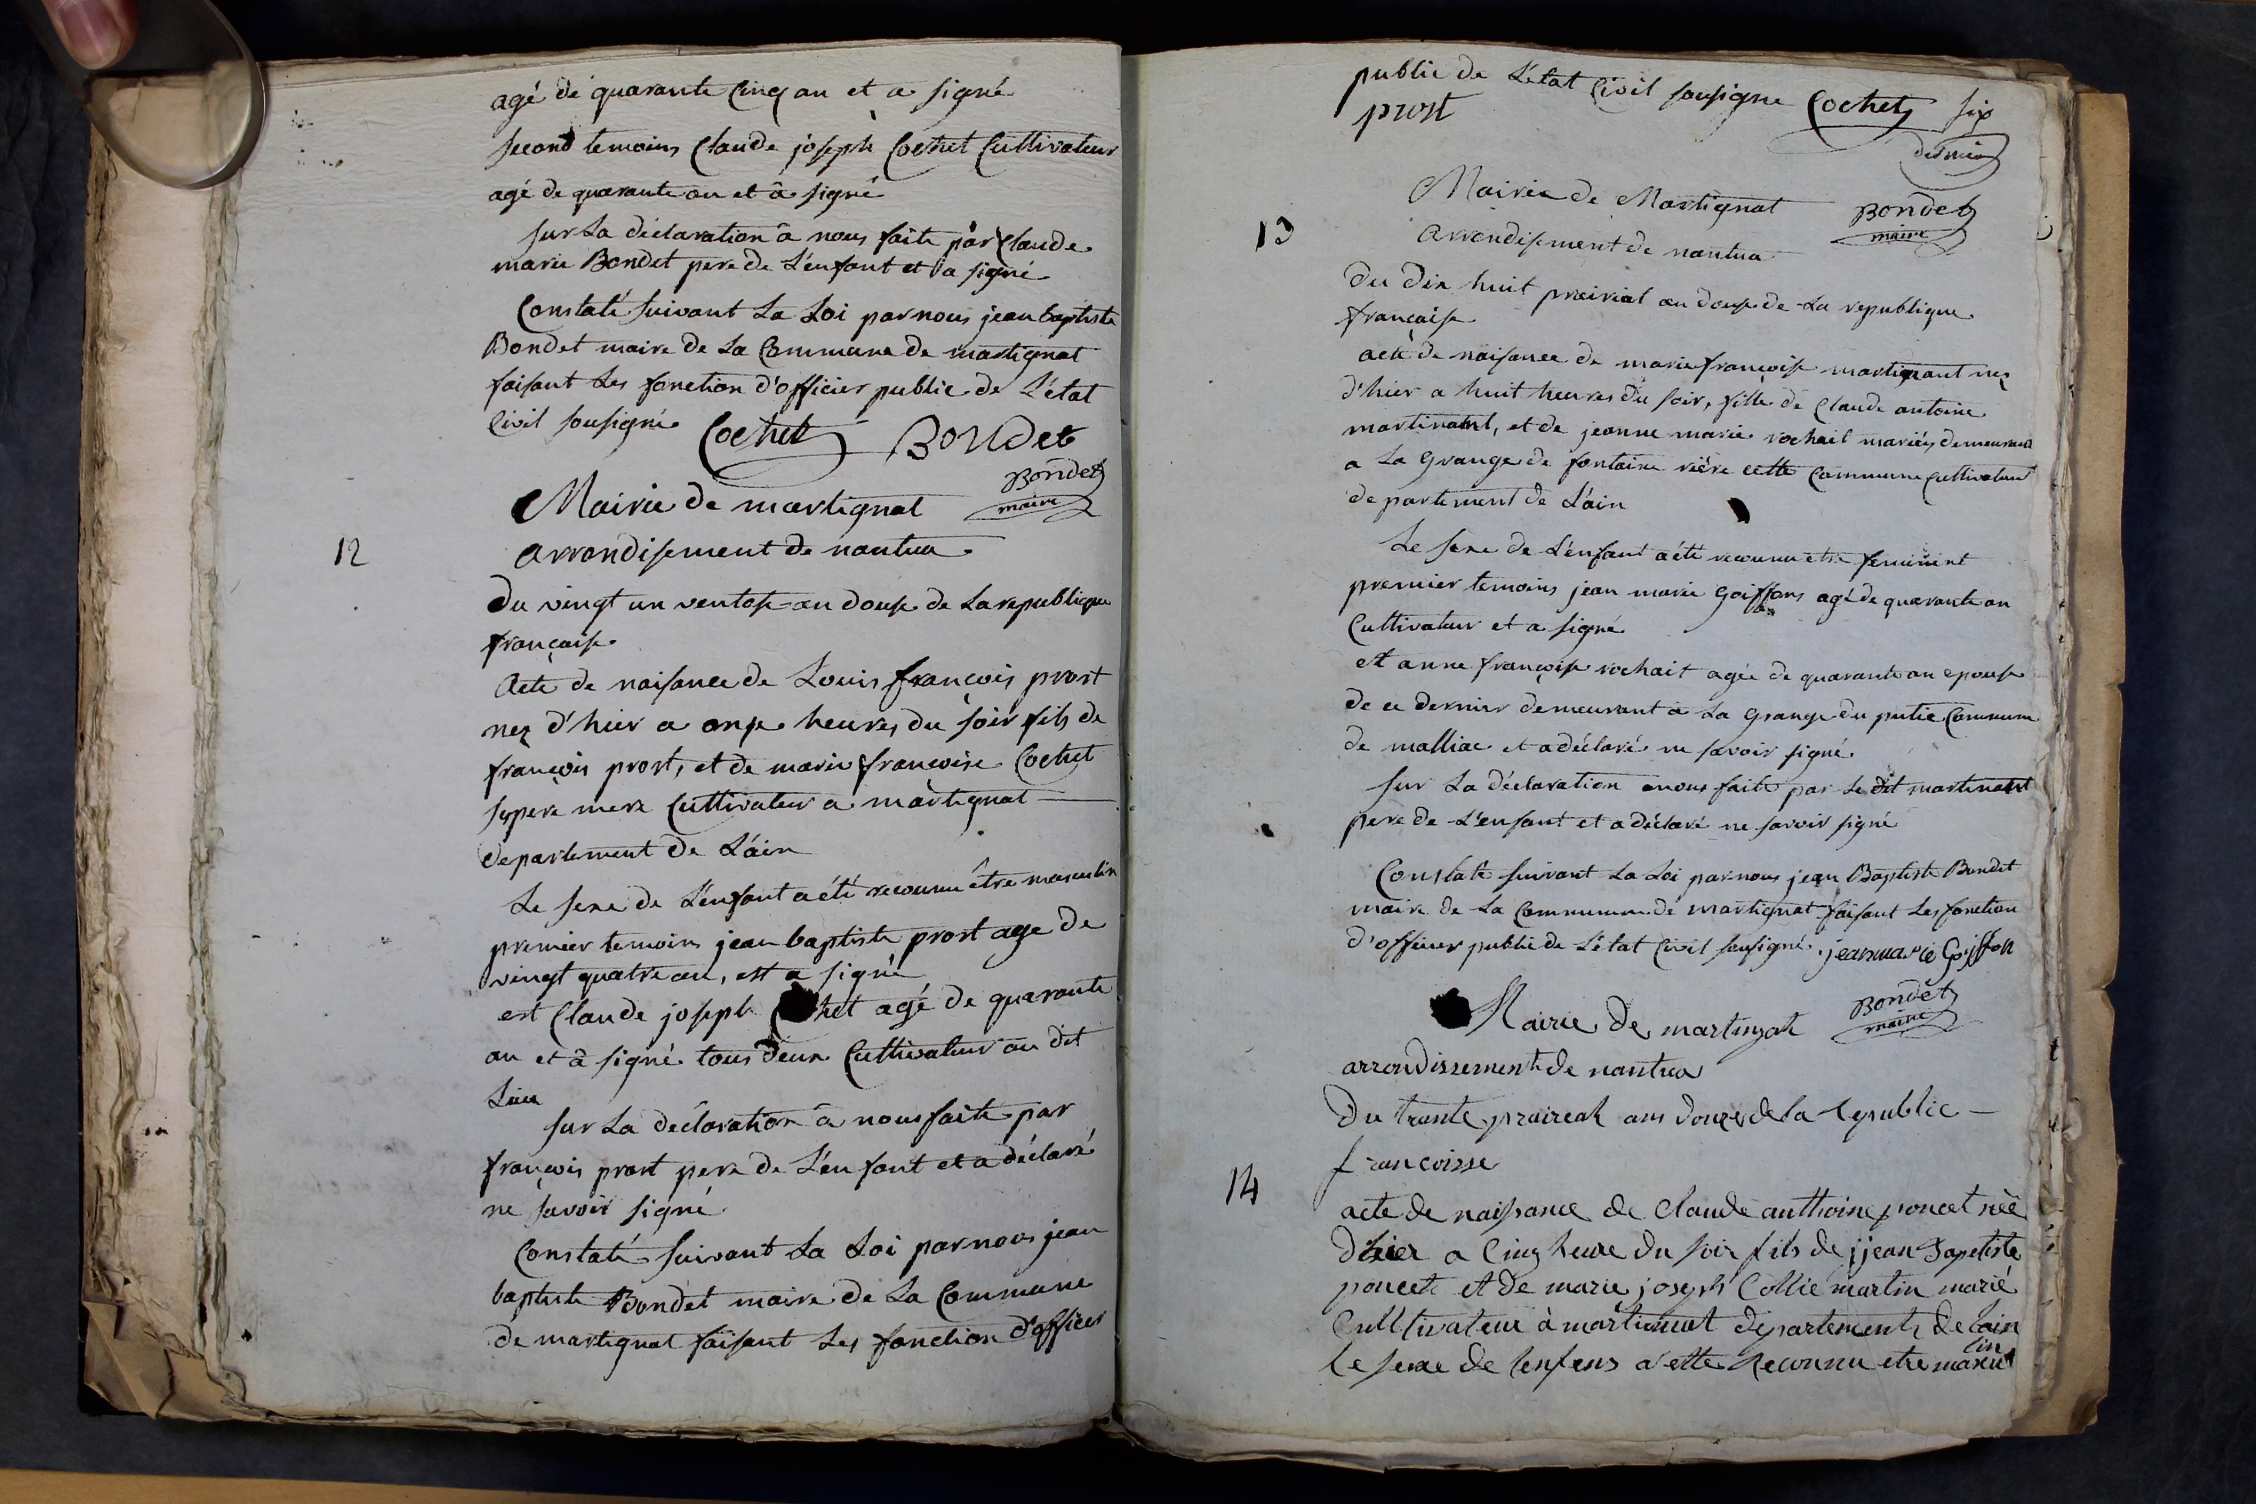 agé de quarante Cinq an et a signé
second temoins Claude joseph Cochet Cultivateur
agé de quarante an et â signé
sur La déclaration â nous faite par Claude
marie Bondet pere de L'enfant et a signé
Constaté suivant La Loi par nous jean baptiste
Bondet maire de La Commune de martignat
faisant Les fonction d'officier public de L'état
Civil sousigné Cochet Bondet
Bondet
maire
Mairie de martignat
12
arrondisement de nantua
Du vingt un ventose an douse de La republique
française
Acte de naisance de Louis françois prost
nez d'hier a onse heures du soir fils de
françois prost, et de marie françoise Cochet
ses pere mere Cultivateur a martignat
departement de L'ain
Le sexe de L'enfant a été reconnu être masculin
premier temoins jean baptiste prost age de
vingt quatre an, est a signé
est Claude joseph Cochet agé de quarante
an et â signé tous deux Cultivateur au dit
Lieu
sur La déclaration â nous faite par
françois prost pere de L'enfant et a déclaré
ne savoir signé
Constaté suivant La Loi par nous jean
baptiste Bondet maire de La Commune
de martignat faisant Les fonction d'officier
public de L'état Civil sousigne Cochet six
prost
dernier
Mairie de Martignat
Bondet
maire
13
arrondisement de nantua
du dix huit prairial an douse de La republique
française
acte de naisance de marie françoise martignant nez
d'hier a huit heures du soir, fille de Claude antoine
martinant, et de jeanne marie rochait mariés demeurant
a La Grange de fontaine rière cette Commune Cultivateur
departement de L'ain
Le sexe de L'enfant a été reconnu etre feminint
premier temoins jean marie Goiffons agé de quarante an
Cultivateur et a signé
et anne françoise rochait agée de quarante an epouse
de ce dernier demeurant a La Grange du putie Commune
de malliac et a déclaré ne savoir signé
sur La déclaration a nous faite par Le dit martinant
père de L'enfant et a déclaré ne savoir signé
Constaté suivant La Loi par nous jean Baptiste Bondet
maire de La Commune de martignat faisant Les fonction
d'officier public de L'état Civil sousigné jean marie Goiffon
Bondet
maire
Mairie de martinzat
arrondissement de nantua
Du trante praireal ans douze de la republic
francoisse
14
acte de naissance de Claude anthoine poncet néé
d'hier a Cinq heure du soir fils de jjean Bapetiste
poncet et de marie joseph Collie martin marié
Cultivateur à martinat departement de lain
le sexe de lenfens a ette reconnu etre mascu
lin